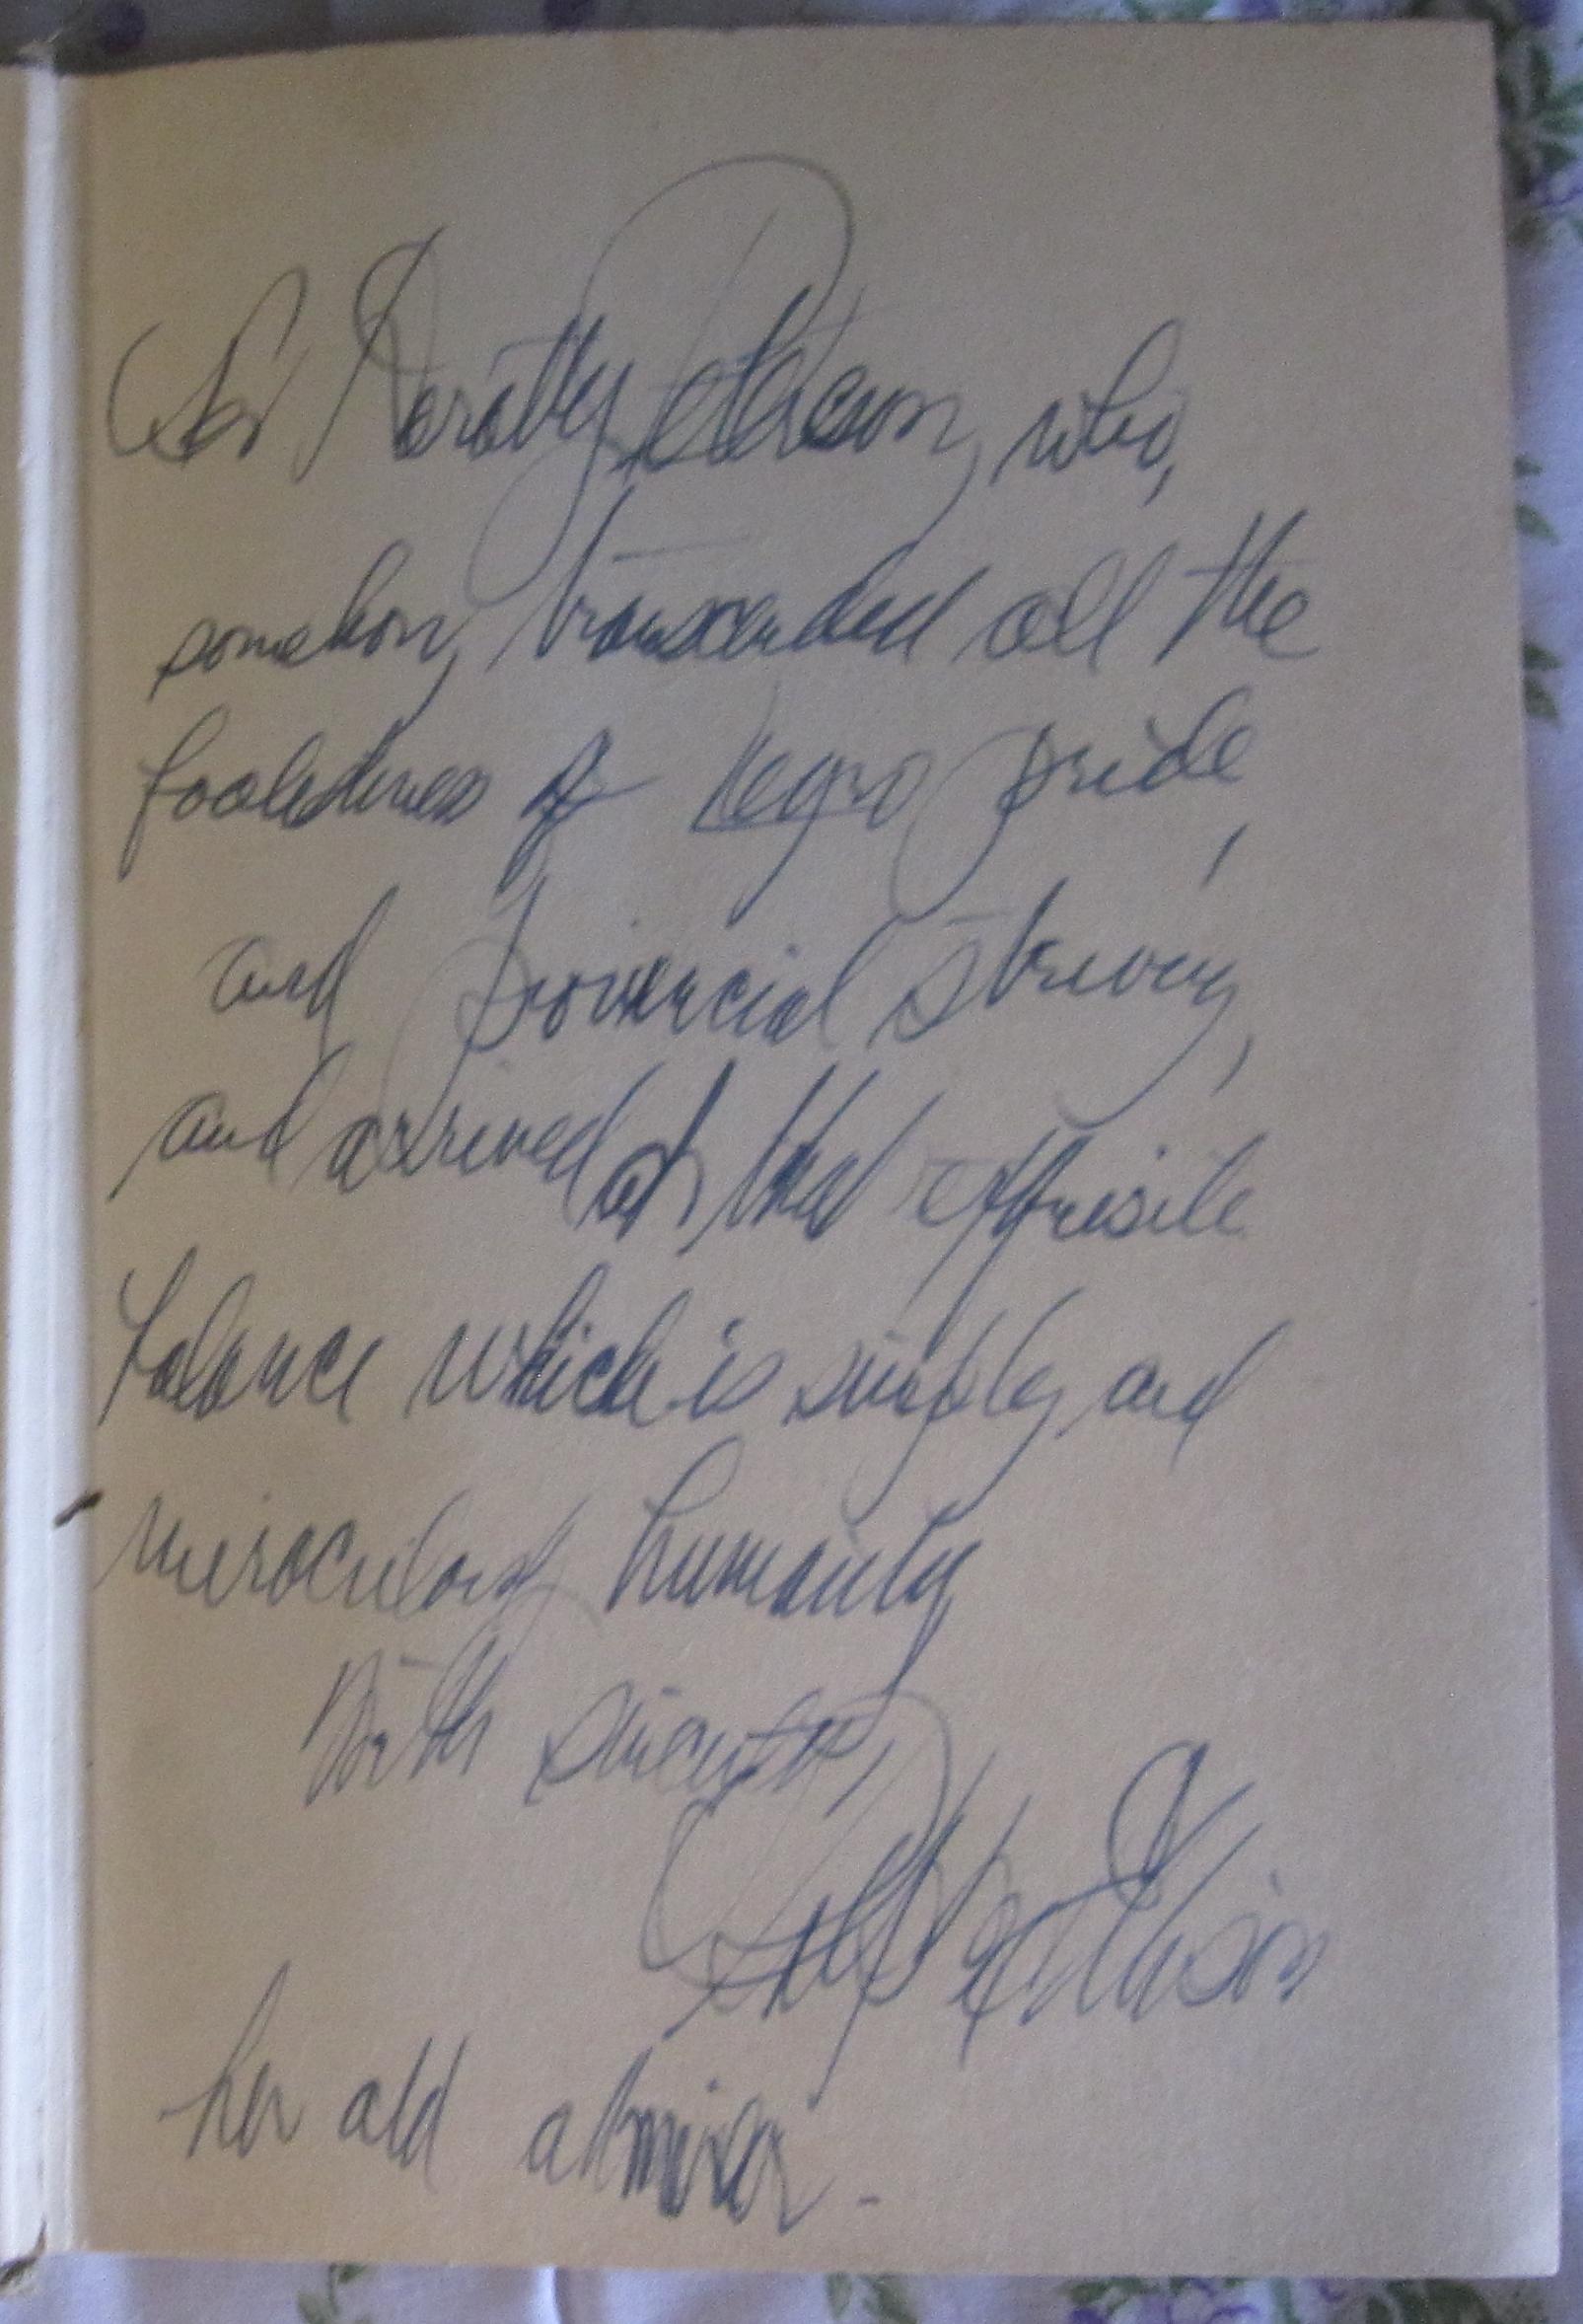 For Dorothy Peterson, who,
somehow, transcended all the
foolishness of Negro pride,
and provincial striving,
and arrived at that exquisite
balance which is simply and
miraculously humanity
With sincerity,
Ralph Ellison
her old admirer.